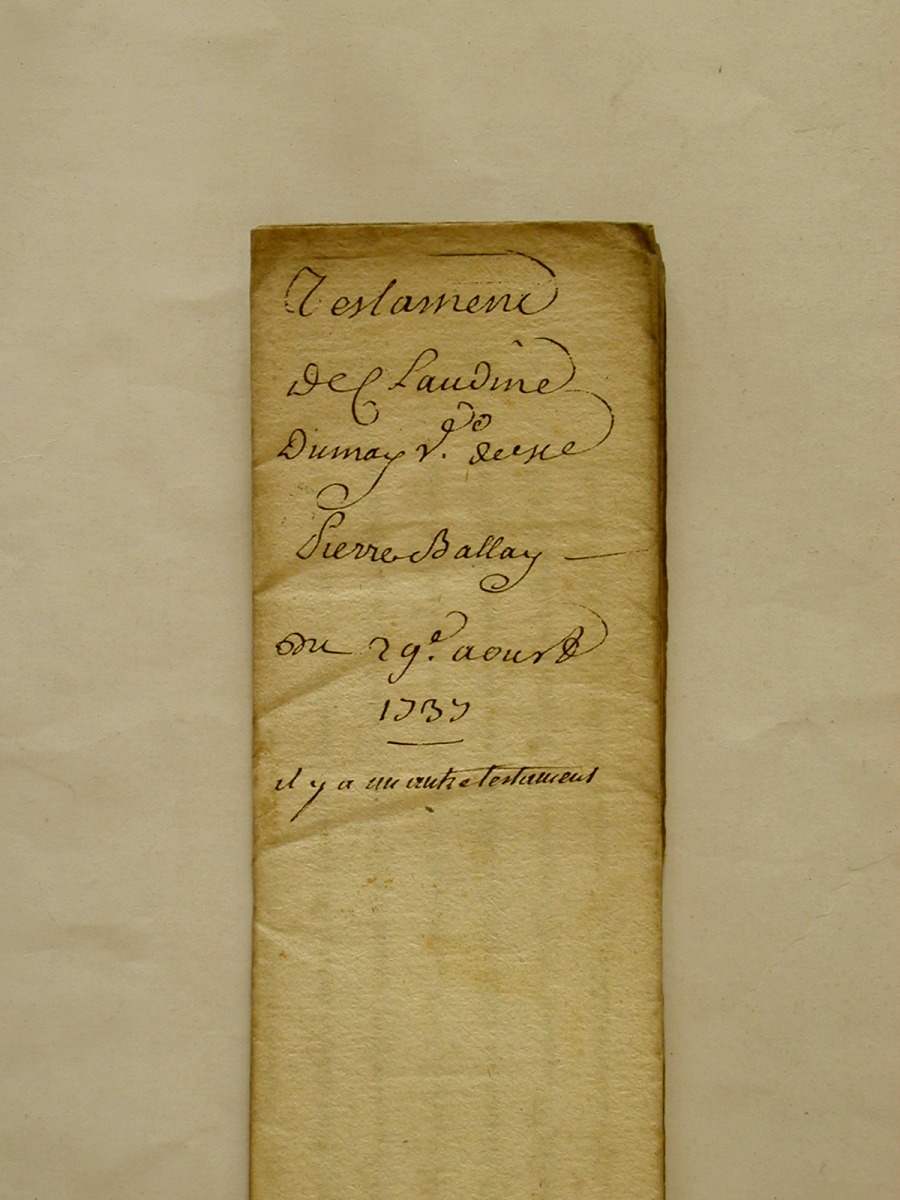 Testament
De Claudine
Dumay v.e de
Pierre Ballay
Du 29.e aoust
1737
il y a un autre testament